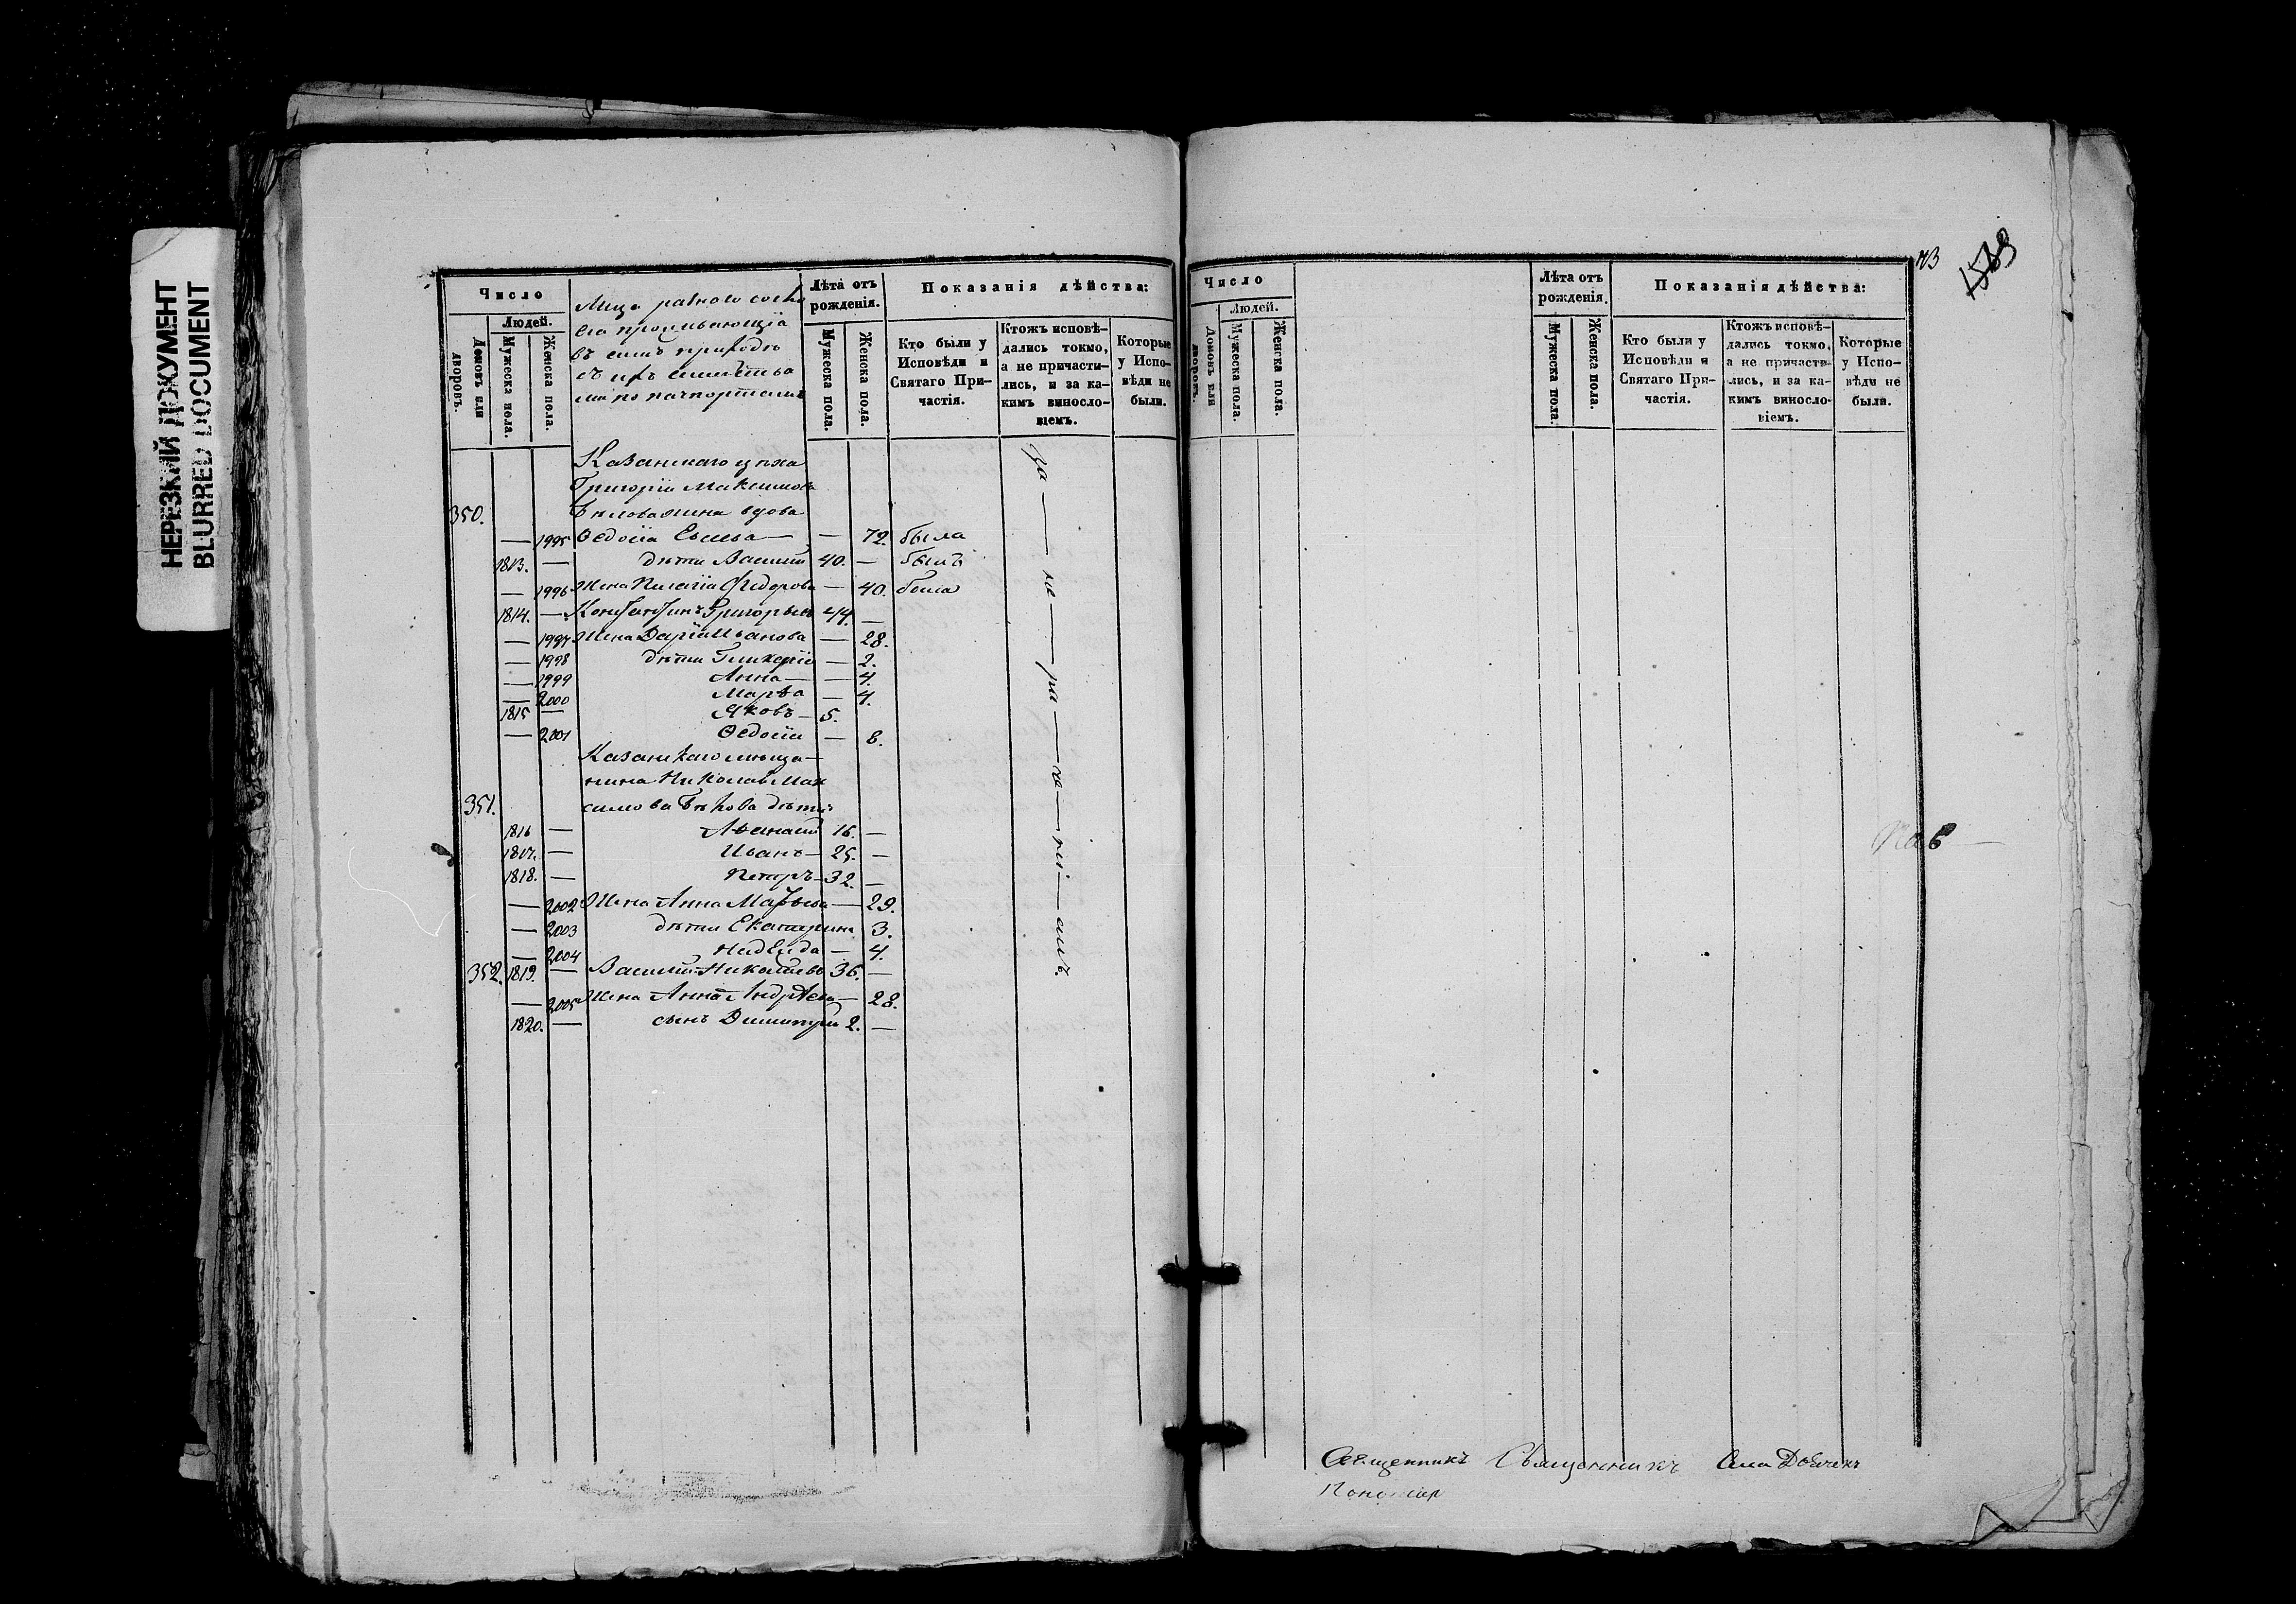 НЕРЕЗКИЙ ДОКУМЕНТ
BLURRED DOCUMENT
Число
Людей.
Домовъ или дворовъ.
Мужеска пола.
Женска пола.
Лица разного состо
проживающiя
въ семъ приходѣ
съ ихъ семейства
ми по пачпортамъ
Лѣта отъ рожденiя.
Мужеска пола.
Женска пола.
Показанiя дѣйства:
Кто были у Исповѣди и Святаго Причастiя.
Ктожъ исповѣдались токмо, а не причастились, и за какимъ винословiемъ.
Которые у Исповѣди не были.
Казанскаго цеха
Григорiя Максимова
350. вдова
— 1995 Ѳедосiя — — 72. была
1813. — дѣти Василiй 40. — былъ
— 1996 Жена Пелагiя Федорова — 40. была
1814. — Константинъ Григорьевъ 44. —
— 1997 Жена Дарiя Иванова — 28.
— 1998 дѣти Гликерiя — 2.
— 1999 Анна — — 4.
— 2000 Марѳа — 4.
1815 — Яковъ — 5.
— 2001 Ѳедосiя — 8.
Казанскаго мѣща-
нина Николая Мак
351. симова дѣти
1816 — Аѳанасiй 16. —
1817. — Иванъ — 25. —
1818. — Петръ — 32. —
— 2002 Жена Анна — 29.
— 2003 дѣти Екатерина 3.
— 2004 Надежда — 4.
352. 1819. — Василiй Николаевъ 36. —
— 2005 Жена Анна Андреева — 28.
1820. — сынъ Димитрiй 2. —
Число
Людей.
Домовъ или дворовъ.
Мужеска пола.
Женска пола.
Лѣта отъ рожденiя.
Мужеска пола.
Женска пола.
Показанiя дѣйства:
Кто были у Исповѣди и Святаго Причастiя.
Ктожъ исповѣдались токмо, а не причастились, и за какимъ винословiемъ.
Которые у Исповѣди не были.
Священникъ Священникъ